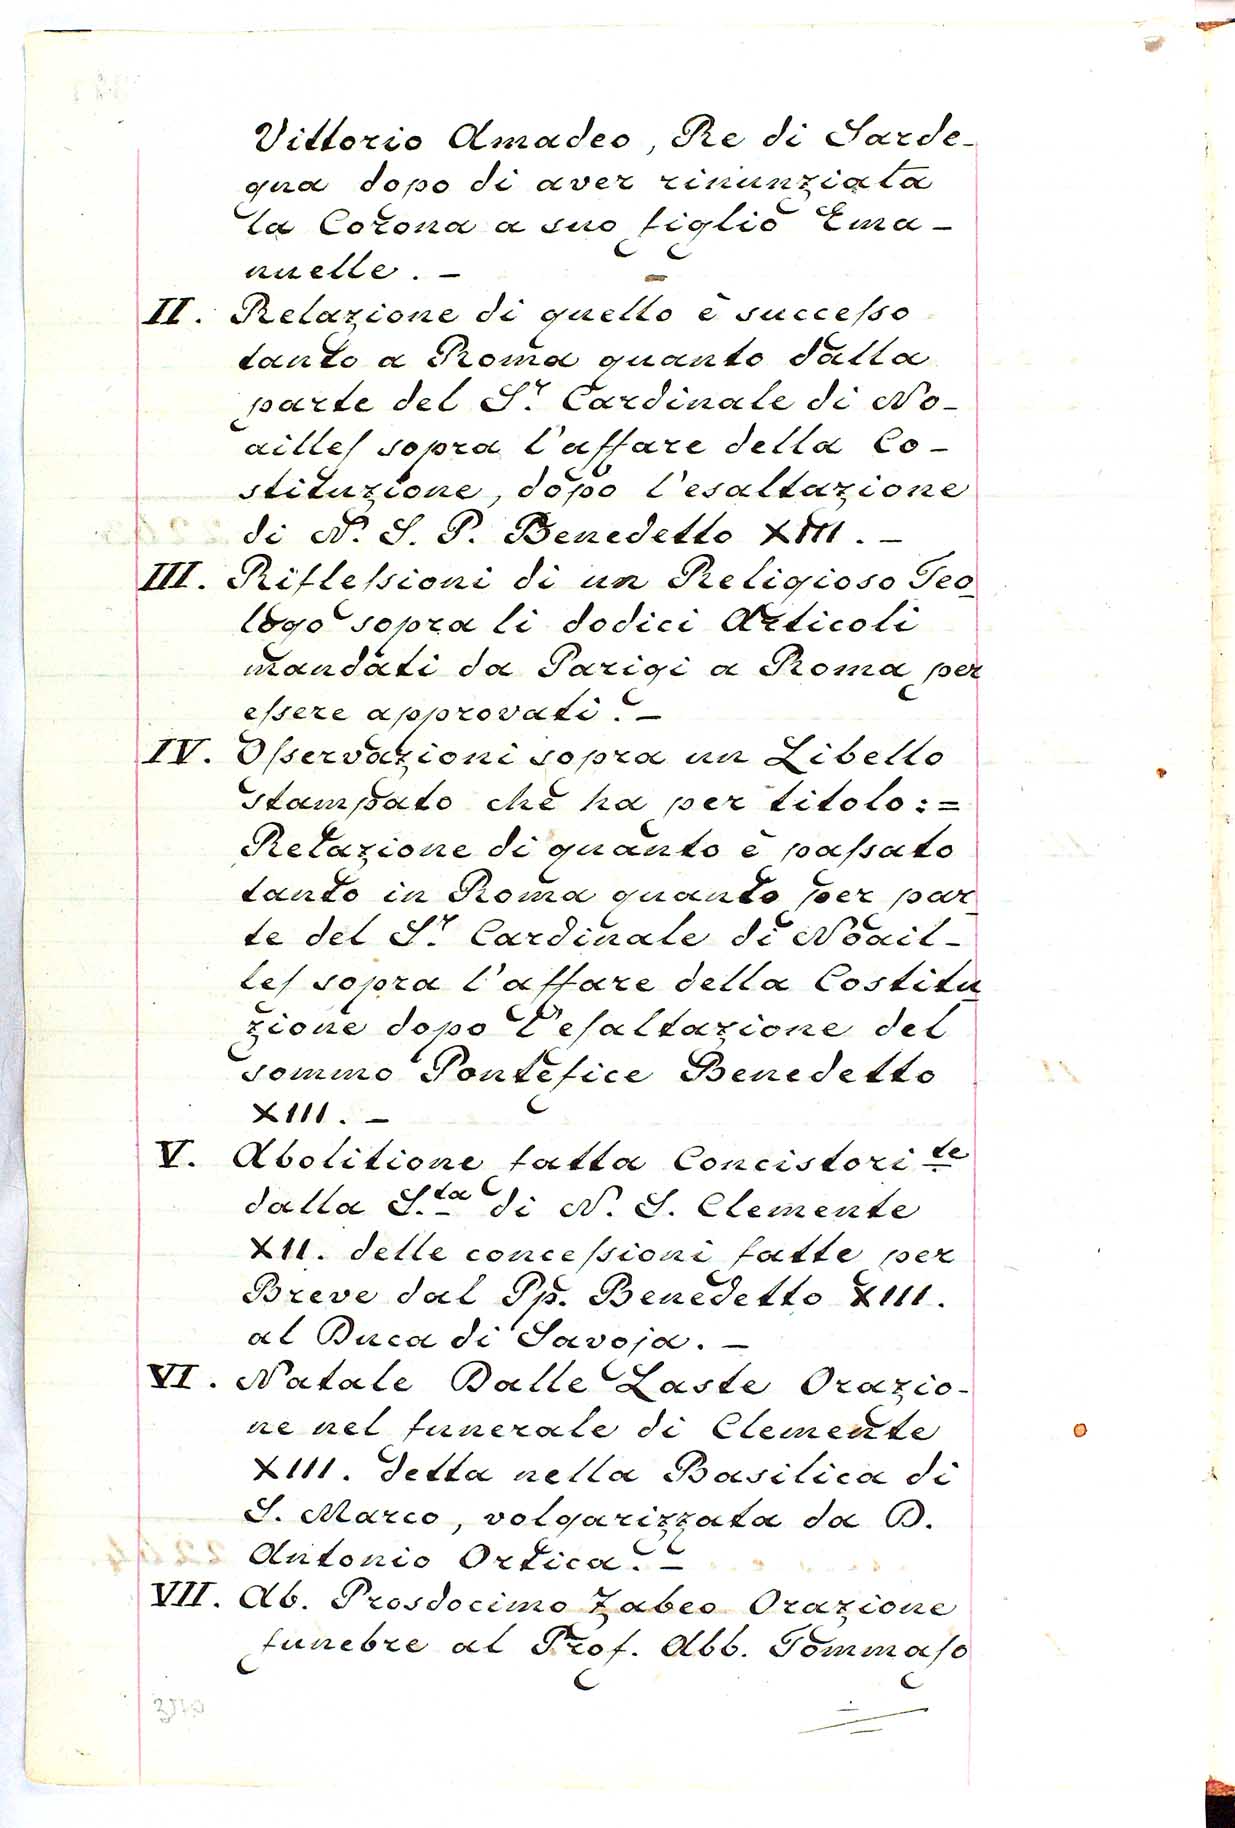 Vittorio Amadeo, Re di Sarde-
gna dopo di aver rinunziata
la Corona a suo figlio Ema-
nuelle. -
II. Relazione di quello è succeſso
tanto a Roma quanto dalla
parte del S.r Cardinale di No-
ailleſ sopra l'affare della Co-
stituzione, dopo l'esaltazione
di N. S. P. Benedetto XIII. -
III. Rifleſsioni di un Religioso Teo-
logo sopra li dodici Articoli
mandati da Parigi a Roma per
eſsere approvati. -
IV. Oſservazioni sopra un Libello
stampato che ha per titolo: =
Relazione di quanto è paſsato
tanto in Roma quanto per par-
te del S.r Cardinale di Noail-
leſ sopra l'affare della Costitu-
zione dopo l'eſaltazione del
sommo Pontefice Benedetto
XIII. -
V. Abolitione fatta Concistori te
dalla S.ta di N. S. Clemente
XII. delle conceſsioni fatte per
Breve dal Pp. Benedetto XIII.
al Duca di Savoja. -
VI. Natale Dalle Laste Orazio-
ne nel funerale di Clemente
XIII. detta nella Basilica di
S. Marco, volgarizzata da D.
Antonio Ortica. -
VII. Ab. Prosdocimo Zabeo Orazione
funebre al Prof. Abb. Tommaſo